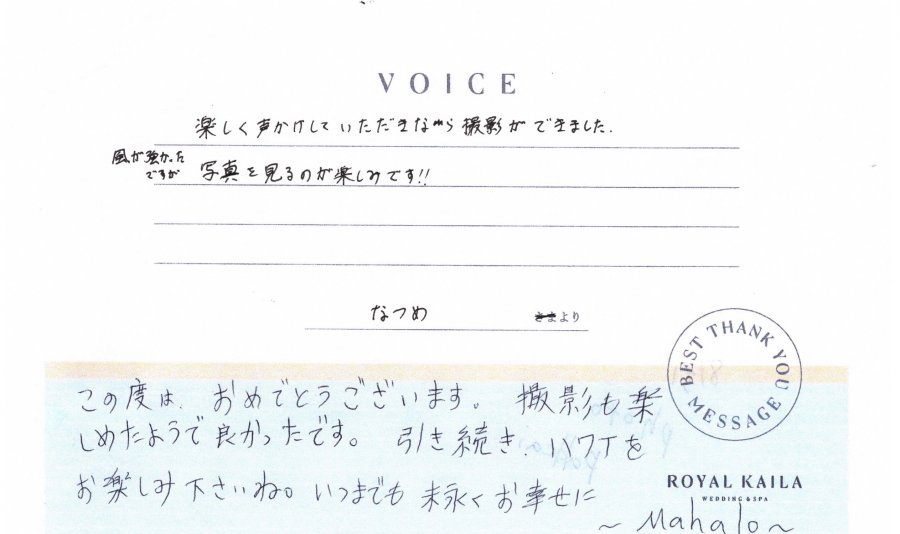 VOICE
楽しく声かけしていただきながら撮影ができました.
風が強かった
ですが
写真を見るのが楽しみです!!
なつめ
さまより
BEST THANK YOU MESSAGE
この度は、おめでとうございます。 撮影も楽
しめたようで良かったです。 引き続き、ハワイを
お楽しみ下さいね。いつまでも末永くお幸せに
ROYAL KAILA
WEDDING & SPA
~ Mahalo ~